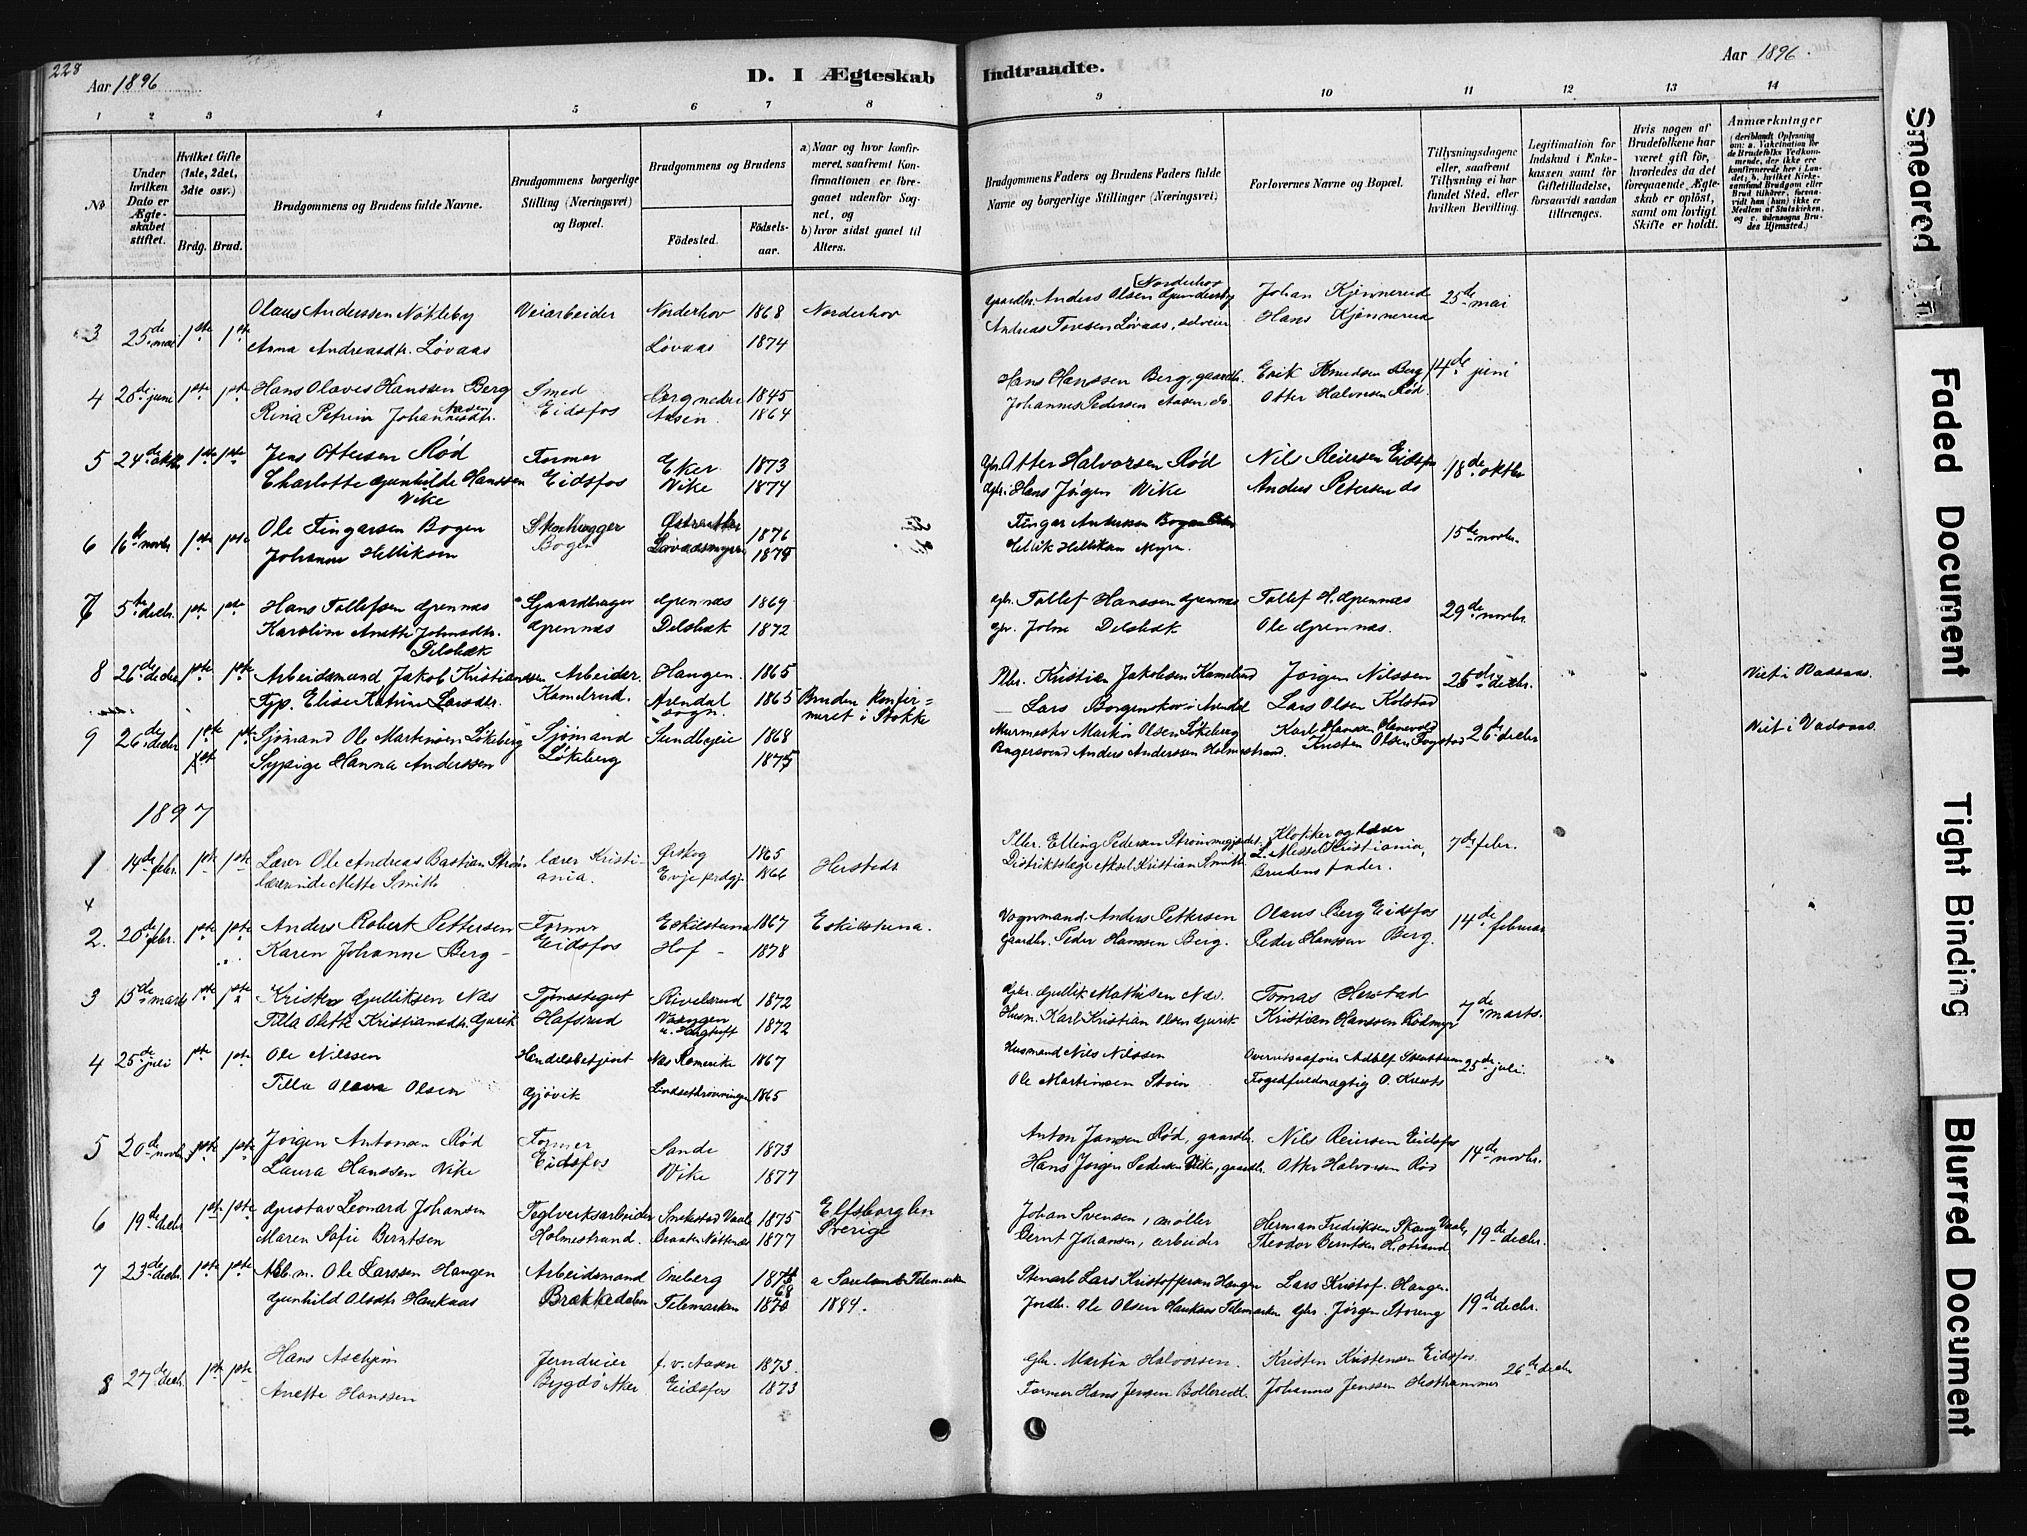 228
Aar 1896
D. I Ægteskab
Indtraadte.
Aar 1896.
1 2 3 4 5 6 7 8
9 10 11 12 13 14
No
Under hvilken Dato er Ægteskabet stiftet.
Hvilket Gifte (1ste, 2det, 3die osv.)
Brdg. Brud.
Brudgommens og Brudens fulde Navne.
Brudgommens borgerlige Stilling (Næringsvei) og Bopæl.
Brudgommens og Brudens
Födested.
Födselsaar.
a) Naar og hvor konfirmeret, saafremt Konfirmationen er foregaaet udenfor Sognet, og
b) hvor sidst gaaet til Alters.
Brudgommens Faders og Brudens Faders fulde Navne og borgerlige Stillinger (Næringsvei)
Forlovernes Navne og Bopæl.
Tillysningsdagene eller, saafremt Tillysning ei har fundet Sted, efter hvilken Bevilling.
Legitimation for Indskud i Enkekassen samt for Giftetilladelse, forsaavidt saadan tiltrænges.
Hvis nogen af Brudefolkene har været gift för, hvorledes da det foregaaende Ægteskab er oplöst, samt om lovligt Skifte er holdt.
Anmærkninger
(deriblandt Oplysning om: a. Vakcination for de Brudefolks Vedkommende, der ikke ere konfirmerede her i Landet; b. hvilket Kirkesamfund Brudgom eller Brud tilhörer, forsaavidt han (hun) ikke er Medlem af Statskirken, og c. udensogns Brudes Hjemsted.)
3 25de mai 1ste 1ste Olaus Anderssen Nökleby Veiarbeider Norderhov 1868 Norderhov Gaardbr. Anders Olsen Gundersby Norderhov Johan Kjönnerud 25de mai
Anna Andreasdtr. Lövaas Lövaas 1874 Andreas Toresen Lövaas, selveier Hans Kjönnerud
4 26de juni 1ste 1ste Hans Olaves Hanssen Berg Smed Berg nedre 1845 Hans Hanssen Berg, gaardbr. Erik Knudsen Berg 14de juni
Rina Petrine Johannesdtr. Aasen Eidsfos Aasen 1864 Johannes Pedersen Aasen do Otter Halvorsen Röd.
5 24de oktbr 1ste 1ste Jens Ottersen Röd Former Eker 1873 Gbr. Otter Halvorsen Röd Nils Reiersen Eidsfos 18de oktbr
Charlotte Gunhilde Hanssen Vike Eidsfos Vike 1874 Gbr. Hans Jörgen Vike Anders Petersen do
6 16de novbr. 1ste 1ste Ole Fingarsen Bogen Skovhugger 1876 Fingar Andersen Bogen 15de novbr.
Johanne Helliksen Bogen Lövaasmyren 1875 Hellik Helliksen Myra.
7 5te decbr. 1ste 1ste Hans Tollefsen Grennæs Gaardbruger Grennæs 1869 Gbr. Tollef Hanssen Grennæs Tollef H. Grennæs 29de novbr.
Karoline Anette Johnsdtr. Delebæk Grennæs Delebæk 1872 Gbr. John Delebæk Ole Grennæs.
8 26de decbr 1ste 1ste Arbeidsmand Jakob Kristiansen Arbeider Hangen 1865 Plbr. Kristian Jakobsen Kamelrud Jörgen Nilssen 26de decbr. Viet i Vadsaas.
Fgp. Elise Katrine Larsdtr. Kamelrud. Arendal sogn. 1865 Bruden konfirmeret i Stokke — Lars Borgenskov i Arendal Lars Olsen Kolstad
9 26de decbr 1ste 1ste Sjömand Ole Martinsen Lökeberg Sjömand Sundbyeie 1868 Murmester Martin Olsen Lökeberg Karl Hanssen Hanevold 26de decbr Viet i Vadsaas.
1ste Sypige Hanna Anderssen Lökeberg 1875 Bagersvend Anders Anderssen Holmestrand. Kristen Olsen Fogstad
1897
1 14de febr. 1ste 1ste Lærer Ole Andreas Bastian Ström lærer Kristiania. Örskog 1865 Herstedt Plbr. Elling Pedersen Strömmegjærdet. Klokker og lærer L. Messel Kristiania, 7de febr.
lærerinde Mette Smith Evje prdgj. 1866 Distriktslæge Aksel Kristian Smith Brudens fader.
2. 20de febr. 1ste 1ste Anders Robert Pettersen Former Eskilstuna 1867 Eskilstuna. Vognmand Anders Pettersen Olaus Berg Eidsfos 14de februar
Karen Johanne Berg - Eidsfos Hof - 1878 Gaardbr. Peder Hanssen Berg. Peder Hanssen Berg.
3 15de marts 1ste 1ste Kristen Gulliksen Næs Tjenestegut Rivelsrud 1872 Gbr. Gullik Mathisen Næs. Tomas Herstad 7de marts.
Tilla Oletta Kristiansdtr. Gjurik Hafsrud 1872 Husm. Karl Kristian Olsen Gjurik Kristian Hanssen Rödmyr
4 25de juli 1ste 1ste Ole Nilssen Handelsbetjent Næs Romerike 1867 Husmand Nils Nilssen 25de juli.
Tilla Olava Olsen Gjövik 1865 Ole Martinsen Stein Fogedfuldmægtig O. Krants
5 20de novbr 1ste 1ste Jörgen Antonsen Röd Former Sande 1873 Anton Jansen Röd, gaardbr. Nils Reiersen Eidsfos 14de novbr.
Laura Hanssen Vike Eidsfos Vike 1877 Hans Jörgen Pedersen Vike, gaardbr. Otter Halvorsen Röd
6 19de decbr 1ste 1ste Gustav Leonard Johansen Teglverksarbeider Smekestad Vaale 1875 Elfsborg len Johan Svensen, möller Herman Fredriksen Skaug Vaale, 19de decbr.
Maren Sofie Berntsen Holmestrand. Braaten Nötteröe 1877 Sverige Bernt Johansen, arbeider Theodor Berntsen H.strand
7 23de decbr. 1ste 1ste Arb.m. Ole Larssen Hangen Arbeidsmand Öneberg a Sauland Telemarken Stenarb. Lars Kristoffersen Hangen Lars Kristof. Hangen. 19de decbr.
Gunhild Olsdtr Haukaas Brækkedalen Telemarken 1870 68 1884. Jordbr. Ole Olsen Haukaas Telemarken Gbr. Jörgen Storeng
8 27de decbr. 1ste 1ste Hans Aschjem Jerndreier f. v. Aasen 1873. Gbr. Martin Halvorsen. Kristen Kristensen Eidsfos 26de decbr
Anette Hanssen Bygdö Aker Eidsfos 1873 Former Hans Jensen Bollerødt. Johannes Jenssen Hesthammer
Smeared
Faded Document
Tight Binding
Blurred Document